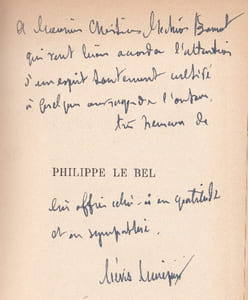 A Monsieur
qui veut bien accorder l'attention
d'un esprit hautement cultivé
à quelques ouvrages de l'auteur
très heureux de
PHILIPPE LE BEL
lui offrir celui-ci en gratitude
et en sympathie.